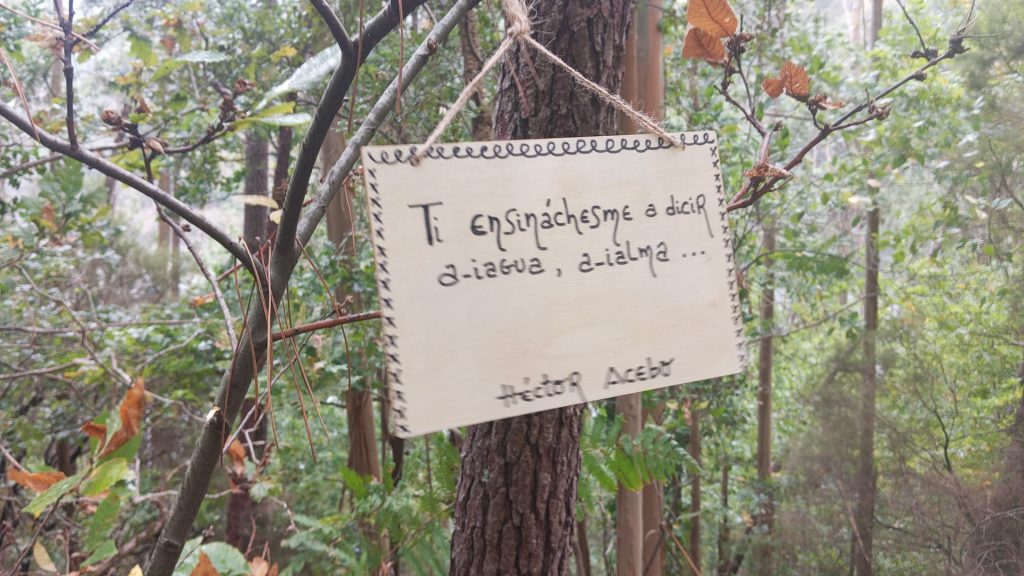 Ti ensináchesme a dicir
a-iagua, a-ialma ...
Héctor Acebo